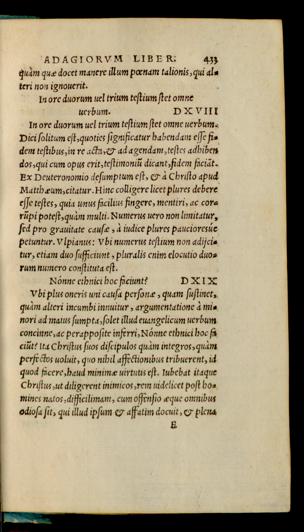 ADAGIORVM LIBER. 433
quàm quæ docet manere illum pœnam talionis, qui al-
teri non ignouerit.
In ore duorum uel trium testium stet omne
uerbum. DXVIII
In ore duorum uel trium testium stet omne uerbum.
Dici solitum est, quoties significatur habendam esse fi-
dem testibus, in re acta, & ad agendam, testes adhiben
dos, qui cum opus erit, testimoniũ dicant, fidem faciãt.
Ex Deuteronomio desumptum est, & à Christo apud
Matthæum, citatur. Hinc colligere licet plures debere
esse testes, quia unus facilius fingere, mentiri, ac cor-
rũpi potest, quàm multi. Numerus uero non limitatur,
sed pro grauitate causæ, à iudice plures paucioresue
petuntur. Vlpianus: Vbi numerus testium non adijci-
tur, etiam duo sufficiunt, pluralis enim elocutio duo-
rum numero constituta est.
Nónne ethnici hoc faciunt? DXIX
Vbi plus oneris uni causa personæ, quam sustinet,
quàm alteri incumbi innuitur, argumentatione à mi-
nori ad maius sumpta, solet illud euangelicum uerbum
concinne, ac perapposite inferri, Nónne ethnici hoc fa
ciũt? Ita Christus suos discipulos quàm integros, quàm
perfectos uoluit, quo nihil affectionibus tribuerent, id
quod facere, haud minimæ uirtutis est. Iubebat itaque
Christus, ut diligerent inimicos, rem uidelicet post ho-
mines natos, difficilimam, cum offensio æque omnibus
odiosa sit, qui illud ipsum & affatim docuit, & plena
E